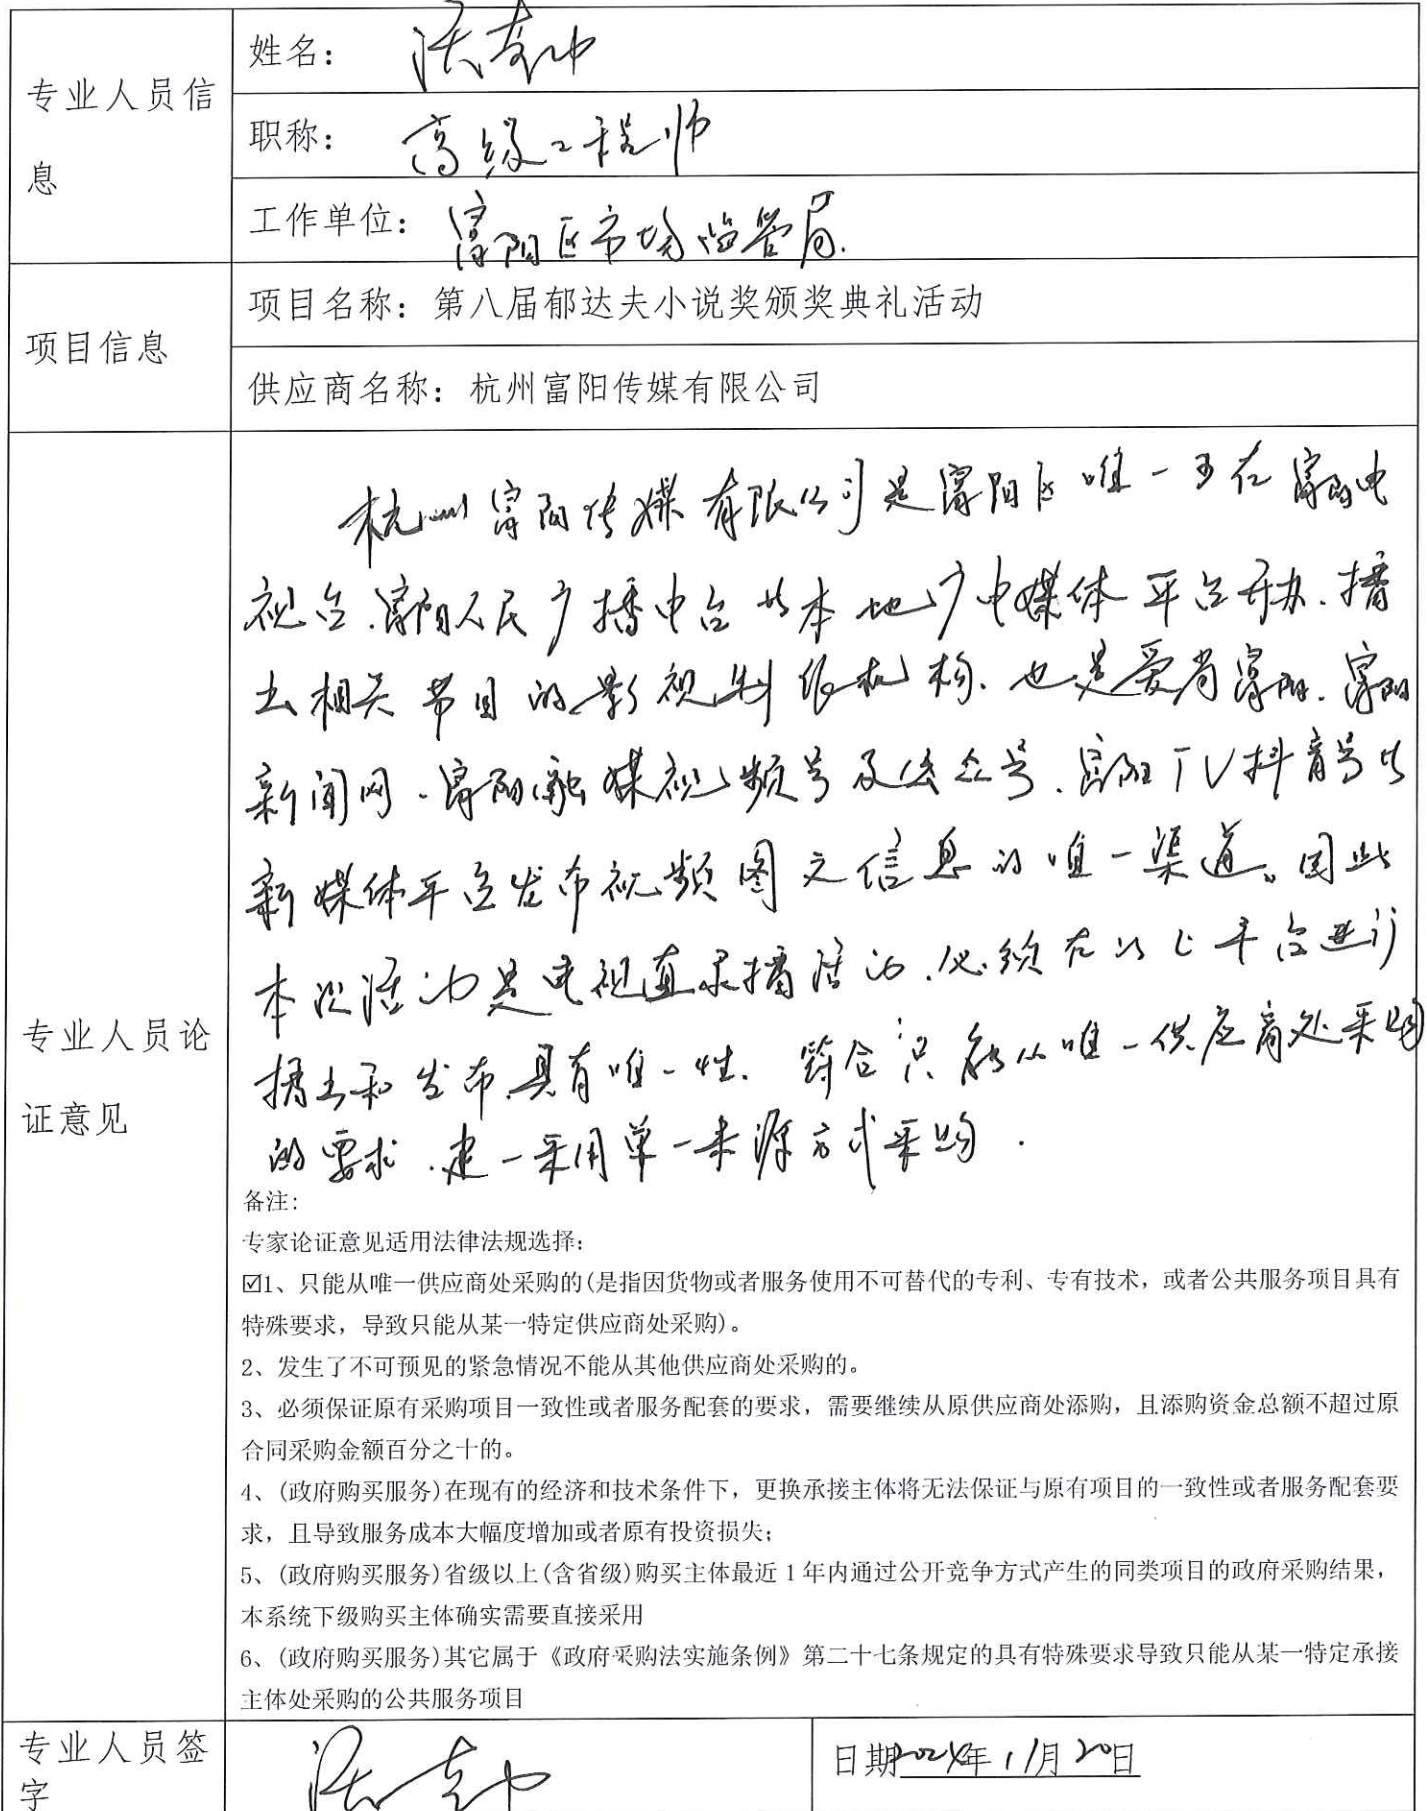 专业人员信息
姓名：
职称：高级工程师
工作单位：富阳区市场监管局.
项目信息
项目名称：第八届郁达夫小说奖颁奖典礼活动
供应商名称：杭州富阳传媒有限公司
专业人员论证意见
杭州富阳传媒有限公司是富阳区唯一可在富阳电
视台、富阳人民广播电台等本地广电媒体平台开办、播
出相关节目的影视制作机构、也是爱尚富阳、富阳
新闻网、富阳融媒视频号及公众号、富阳TV抖音号等
新媒体平台发布视频图文信息的唯一渠道。因此
本次活动是电视直录播活动、必须在以上平台进行
播出和发布、具有唯一性、符合只能从唯一供应商处采购
的要求、建一采用单一来源方式采购.
备注：
专家论证意见适用法律法规选择：
☑1、只能从唯一供应商处采购的(是指因货物或者服务使用不可替代的专利、专有技术，或者公共服务项目具有
特殊要求，导致只能从某一特定供应商处采购)。
2、发生了不可预见的紧急情况不能从其他供应商处采购的。
3、必须保证原有采购项目一致性或者服务配套的要求，需要继续从原供应商处添购，且添购资金总额不超过原
合同采购金额百分之十的。
4、(政府购买服务)在现有的经济和技术条件下，更换承接主体将无法保证与原有项目的一致性或者服务配套要
求，且导致服务成本大幅度增加或者原有投资损失；
5、(政府购买服务)省级以上(含省级)购买主体最近 1 年内通过公开竞争方式产生的同类项目的政府采购结果，
本系统下级购买主体确实需要直接采用
6、(政府购买服务)其它属于《政府采购法实施条例》第二十七条规定的具有特殊要求导致只能从某一特定承接
主体处采购的公共服务项目
专业人员签字
日期2024年11月20日